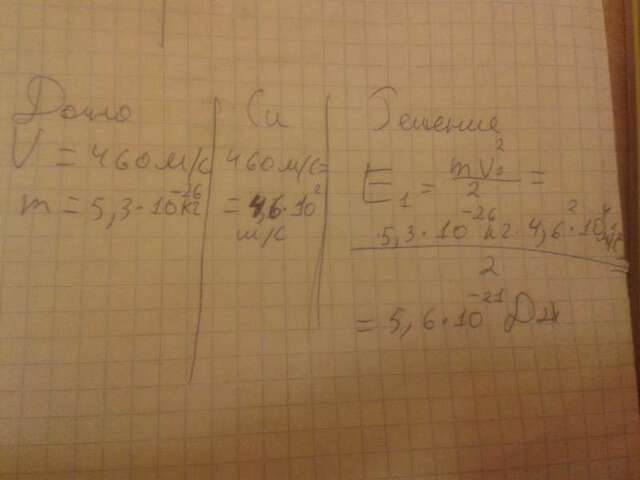 Дано
V = 460 м/с
m = 5,3 · 10⁻²⁶ кг
Си
460 м/с =
= 4,6 · 10²
м/с
Решение
E₁ = mV₀² / 2 =
5,3 · 10⁻²⁶ кг · 4,6² · 10⁴ м²/с² / 2 =
= 5,6 · 10⁻²¹ Дж